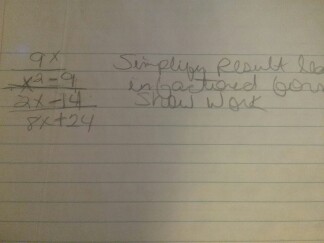 9x
x²-9
2x-14
8x+24
Simplify Result
in factored form
Show work